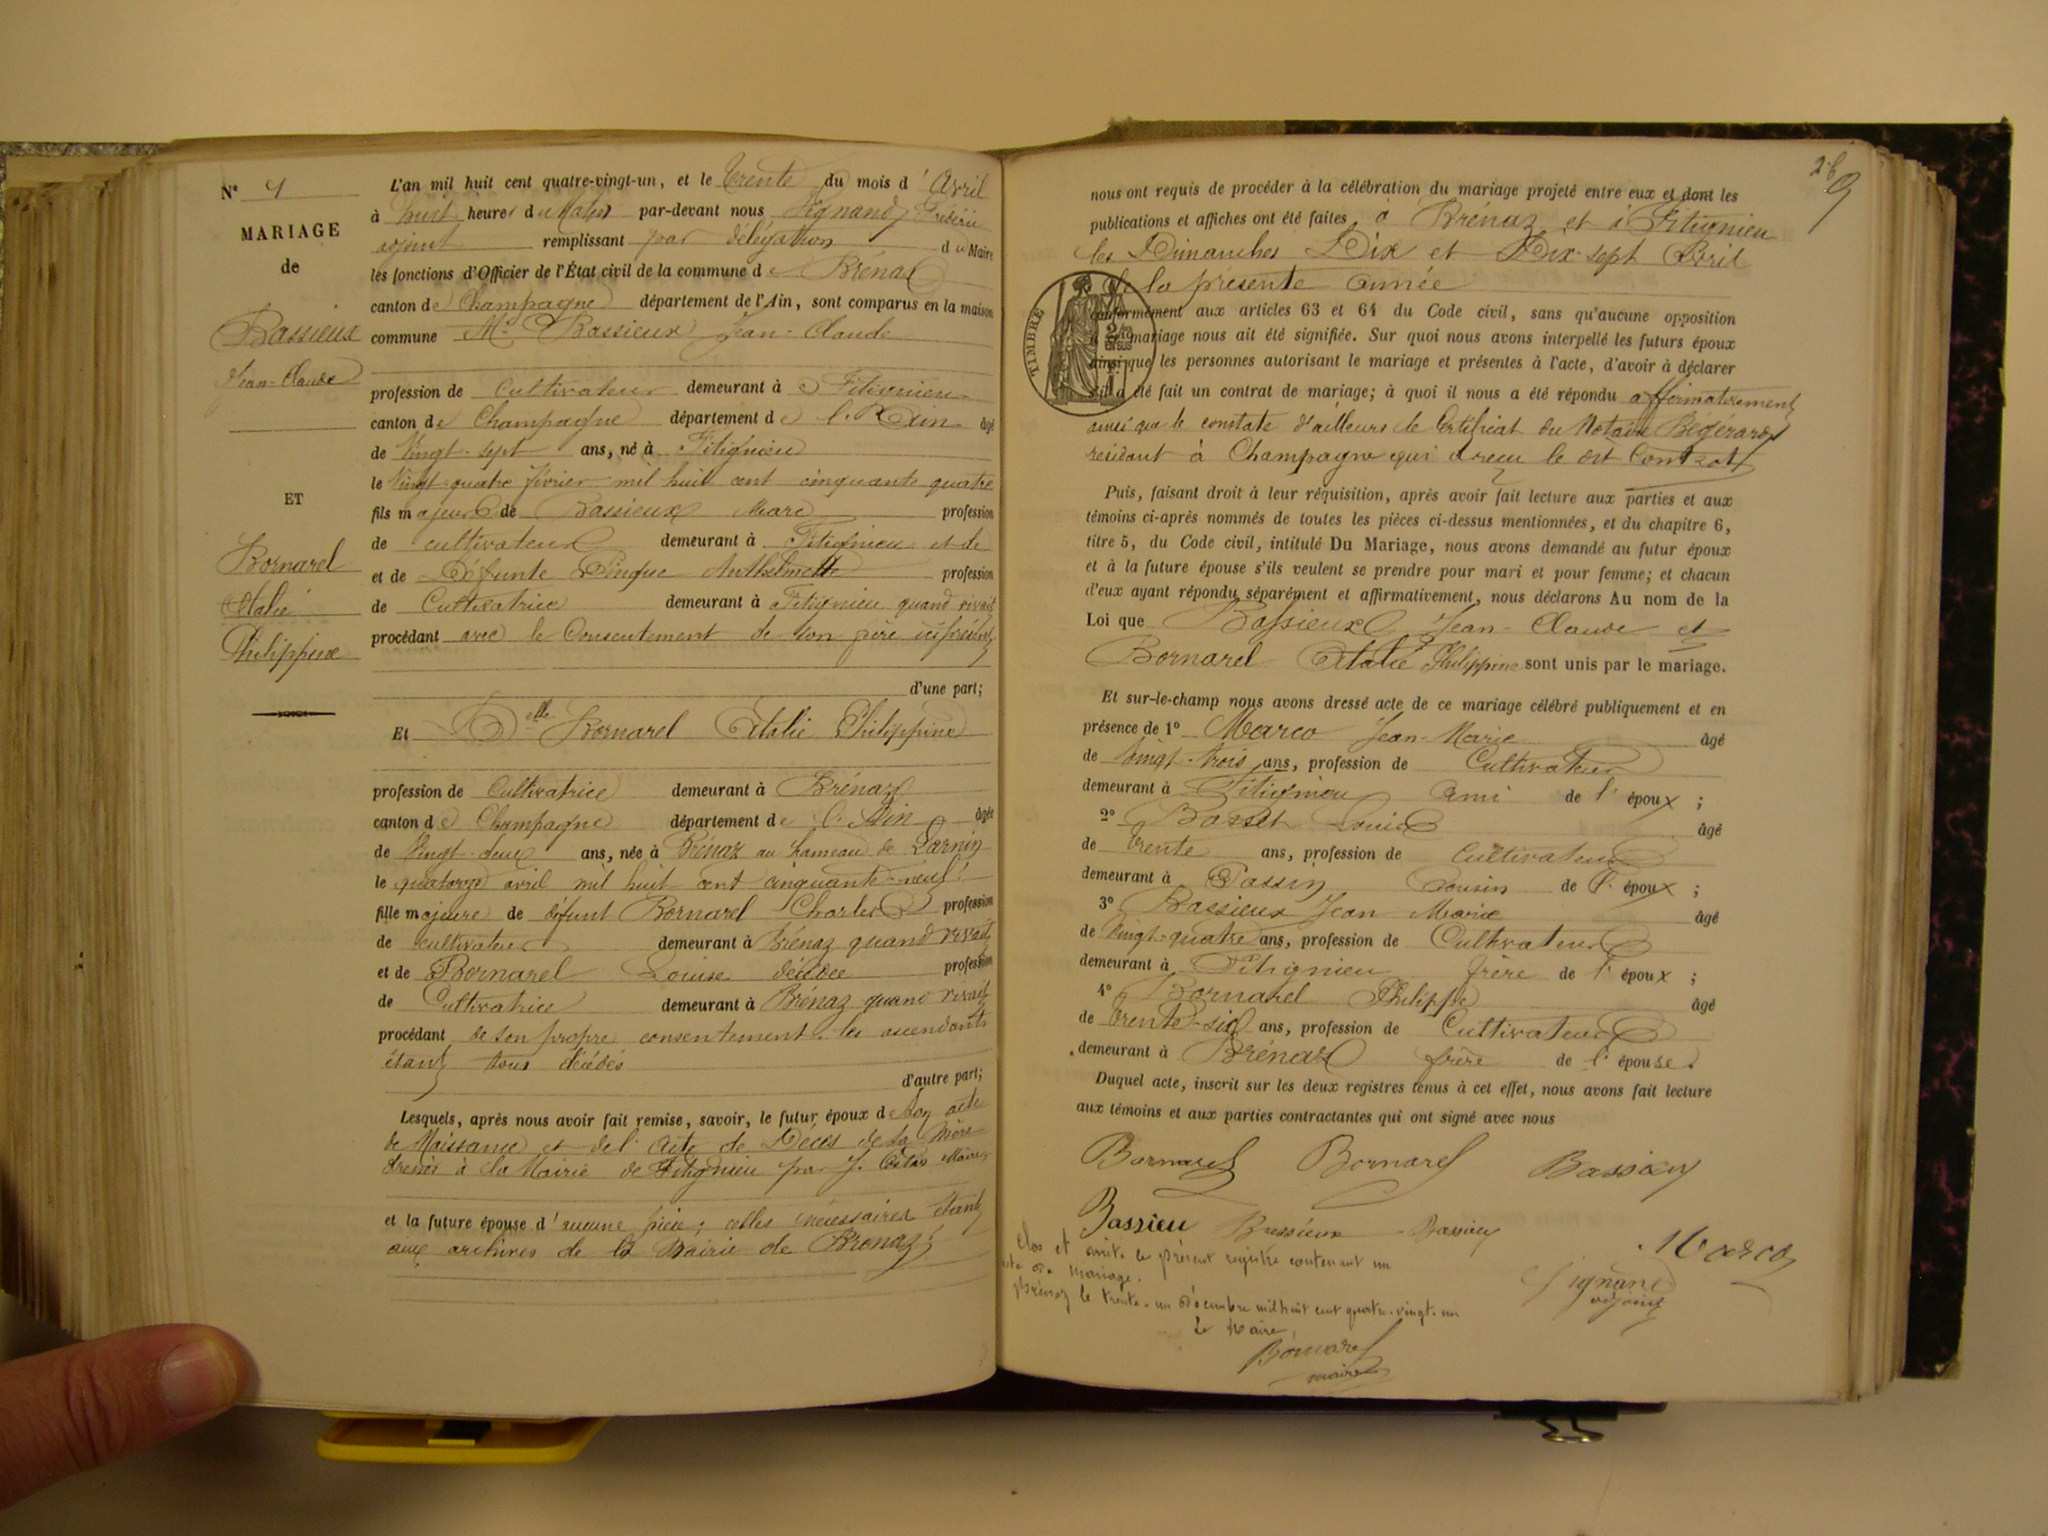 N° 1
MARIAGE
de
Bassieux
Jean-Claude
ET
Bornarel
Italie
Philippine
L'an mil huit cent quatre-vingt-un, et le Trente du mois d'Avril
à huit heures du Matin par-devant nous Pignand, Frédéric
adjoint remplissant par délégation du Maire
les fonctions d'Officier de l'État civil de la commune de Brénaz
canton de Champagne département de l'Ain, sont comparus en la maison
commune Mr Bassieux Jean-Claude
profession de Cultivateur demeurant à Fitignieu
canton de Champagne département de l'Ain âgé
de Vingt-sept ans, né à Fitignieu
le Vingt-quatre février mil huit cent cinquante quatre
fils majeur de Bassieux Marc profession
de cultivateur demeurant à Fitignieu et de
et de Défunte Pingue Anthelmette profession
de Cultivatrice demeurant à Fitignieu quand vivait
procédant avec le Consentement de son père ici présent
d'une part;
Et Delle Bornarel Italie Philippine
profession de Cultivatrice demeurant à Brénaz
canton de Champagne département de l'Ain âgée
de Vingt-deux ans, née à Brénaz au hameau de
le quatorze avril mil huit cent cinquante-neuf
fille majeure de défunt Bornarel Charles profession
de cultivateur demeurant à Brénaz quand vivait
et de Bornarel Louise décédée profession
de Cultivatrice demeurant à Brénaz quand vivait
procédant de son propre consentement les ascendants
étant tous décédés
d'autre part;
Lesquels, après nous avoir fait remise, savoir, le futur époux de son acte
de Naissance et de l'acte de Décès de sa Mère
dressés à la Mairie de Fitignieu par J. Maire
et la future épouse d'aucune pièce; celles nécessaires étant
aux archives de la Mairie de Brénaz;
269
nous ont requis de procéder à la célébration du mariage projeté entre eux et dont les
publications et affiches ont été faites à Brénaz et à Fitignieu
les Dimanches Dix et Dix-sept Avril
de la présente année
TIMBRE
conformément aux articles 63 et 64 du Code civil, sans qu'aucune opposition
au mariage nous ait été signifiée. Sur quoi nous avons interpellé les futurs époux
ainsi que les personnes autorisant le mariage et présentes à l'acte, d'avoir à déclarer
s'il a été fait un contrat de mariage; à quoi il nous a été répondu affirmativement
ainsi que le constate d'ailleurs le Certificat du Notaire Bégérard
résidant à Champagne qui a reçu le dit Contrat
Puis, faisant droit à leur réquisition, après avoir fait lecture aux parties et aux
témoins ci-après nommés de toutes les pièces ci-dessus mentionnées, et du chapitre 6,
titre 5, du Code civil, intitulé Du Mariage, nous avons demandé au futur époux
et à la future épouse s'ils veulent se prendre pour mari et pour femme; et chacun
d'eux ayant répondu séparément et affirmativement, nous déclarons Au nom de la
Loi que Bassieux Jean-Claude et
Bornarel Italie Philippine sont unis par le mariage.
Et sur-le-champ nous avons dressé acte de ce mariage célébré publiquement et en
présence de 1° Marco Jean-Marie âgé
de Vingt-trois ans, profession de Cultivateur
demeurant à Fitignieu ami de l'époux;
2° Basset Louis âgé
de trente ans, profession de Cultivateur
demeurant à Passin Cousin de l'époux;
3° Bassieux Jean Marie âgé
de Vingt-quatre ans, profession de Cultivateur
demeurant à Fitignieu frère de l'époux;
4° Bornarel Philippe âgé
de trente-six ans, profession de Cultivateur
demeurant à Brénaz frère de l'épouse.
Duquel acte, inscrit sur les deux registres tenus à cet effet, nous avons fait lecture
aux témoins et aux parties contractantes qui ont signé avec nous
Bornarel Bornarel Bassieu
Bassieu Bassieux Bassieu
Marco
Pignand
adjoint
Clos et arrêté le présent registre contenant un
acte de mariage.
Brénaz le trente-un Décembre mil huit cent quatre-vingt-un
Le Maire,
Bornarel
maire